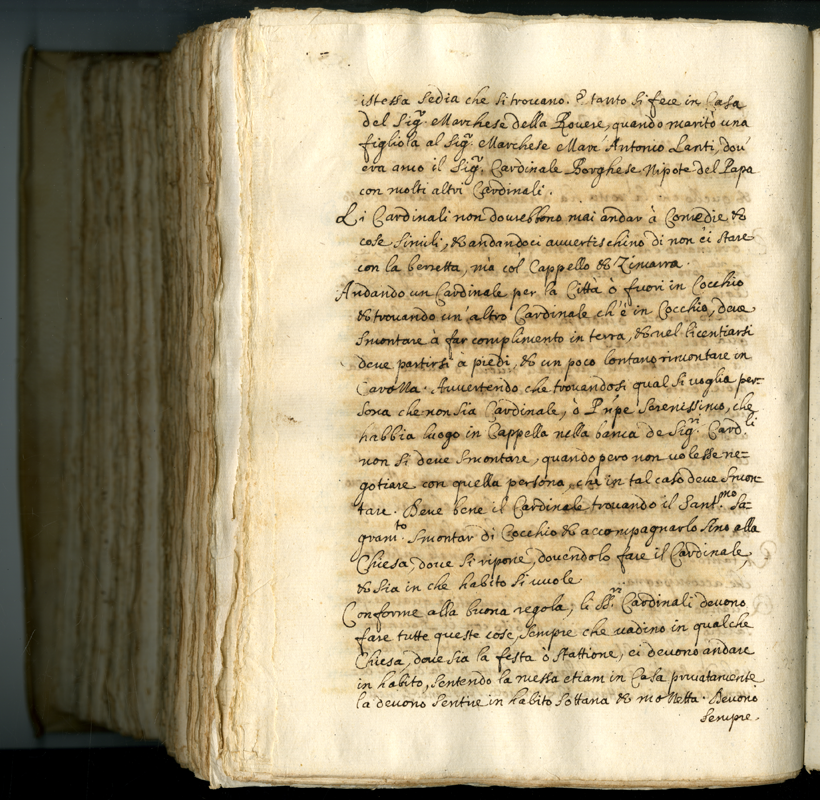 istessa sedia che si trouano. E tanto si fece in Casa
del Sigr. Marchese della Rouere, quando maritò una
figliola al Sigr. Marchese Marc Antonio Lanti, dou'
era anco il Sigr. Cardinale Borghese Nipote del Papa
con molti altri Cardinali.
Li Cardinali non dourebbono mai andar à Comedie &
cose simili, & andandoci auuertischino di non ci stare
con la berretta, mà col' Cappello & Zimarra.
Andando un Cardinale per la Città ò fuori in Cocchio
& trouando un' altro Cardinale ch'è in Cocchio, deue
smontare à far complimento in terra, & nel licentiarsi
deue partirsi à piedi, & un poco lontano rimontare in
Carozza. Auuertendo che trouandosi qual si uoglia per=
sona che non sia Cardinale, ò Prıpe Serenissimo, che
habbia luogo in Cappella nella banca de Sigri. Cardli
non si deue smontare, quando pero non uolesse ne=
gotiare con quella persona, chi in tal caso deue smon=
tare. Deue bene il Cardinale trouando il Santmo. Sa=
gramto. smontar di Cocchio & accompagnarlo sino alla
Chiesa, doue si ripone, douendolo fare il Cardinale,
& sia in che habito si uuole
Conforme alla buona regola, li SSri. Cardinali deuono
fare tutte queste cose, sempre che uadino in qualche
Chiesa, doue sia la festa ò stattione, ci deuono andare
in habito, sentendo la messa etiam in Casa priuatamente
la deuono sentire in habito sottana & mozzetta. Deuono
sempre.